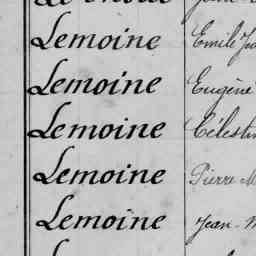 Lemoine Emile
Lemoine Eugène
Lemoine
Lemoine Pierre
Lemoine Jean